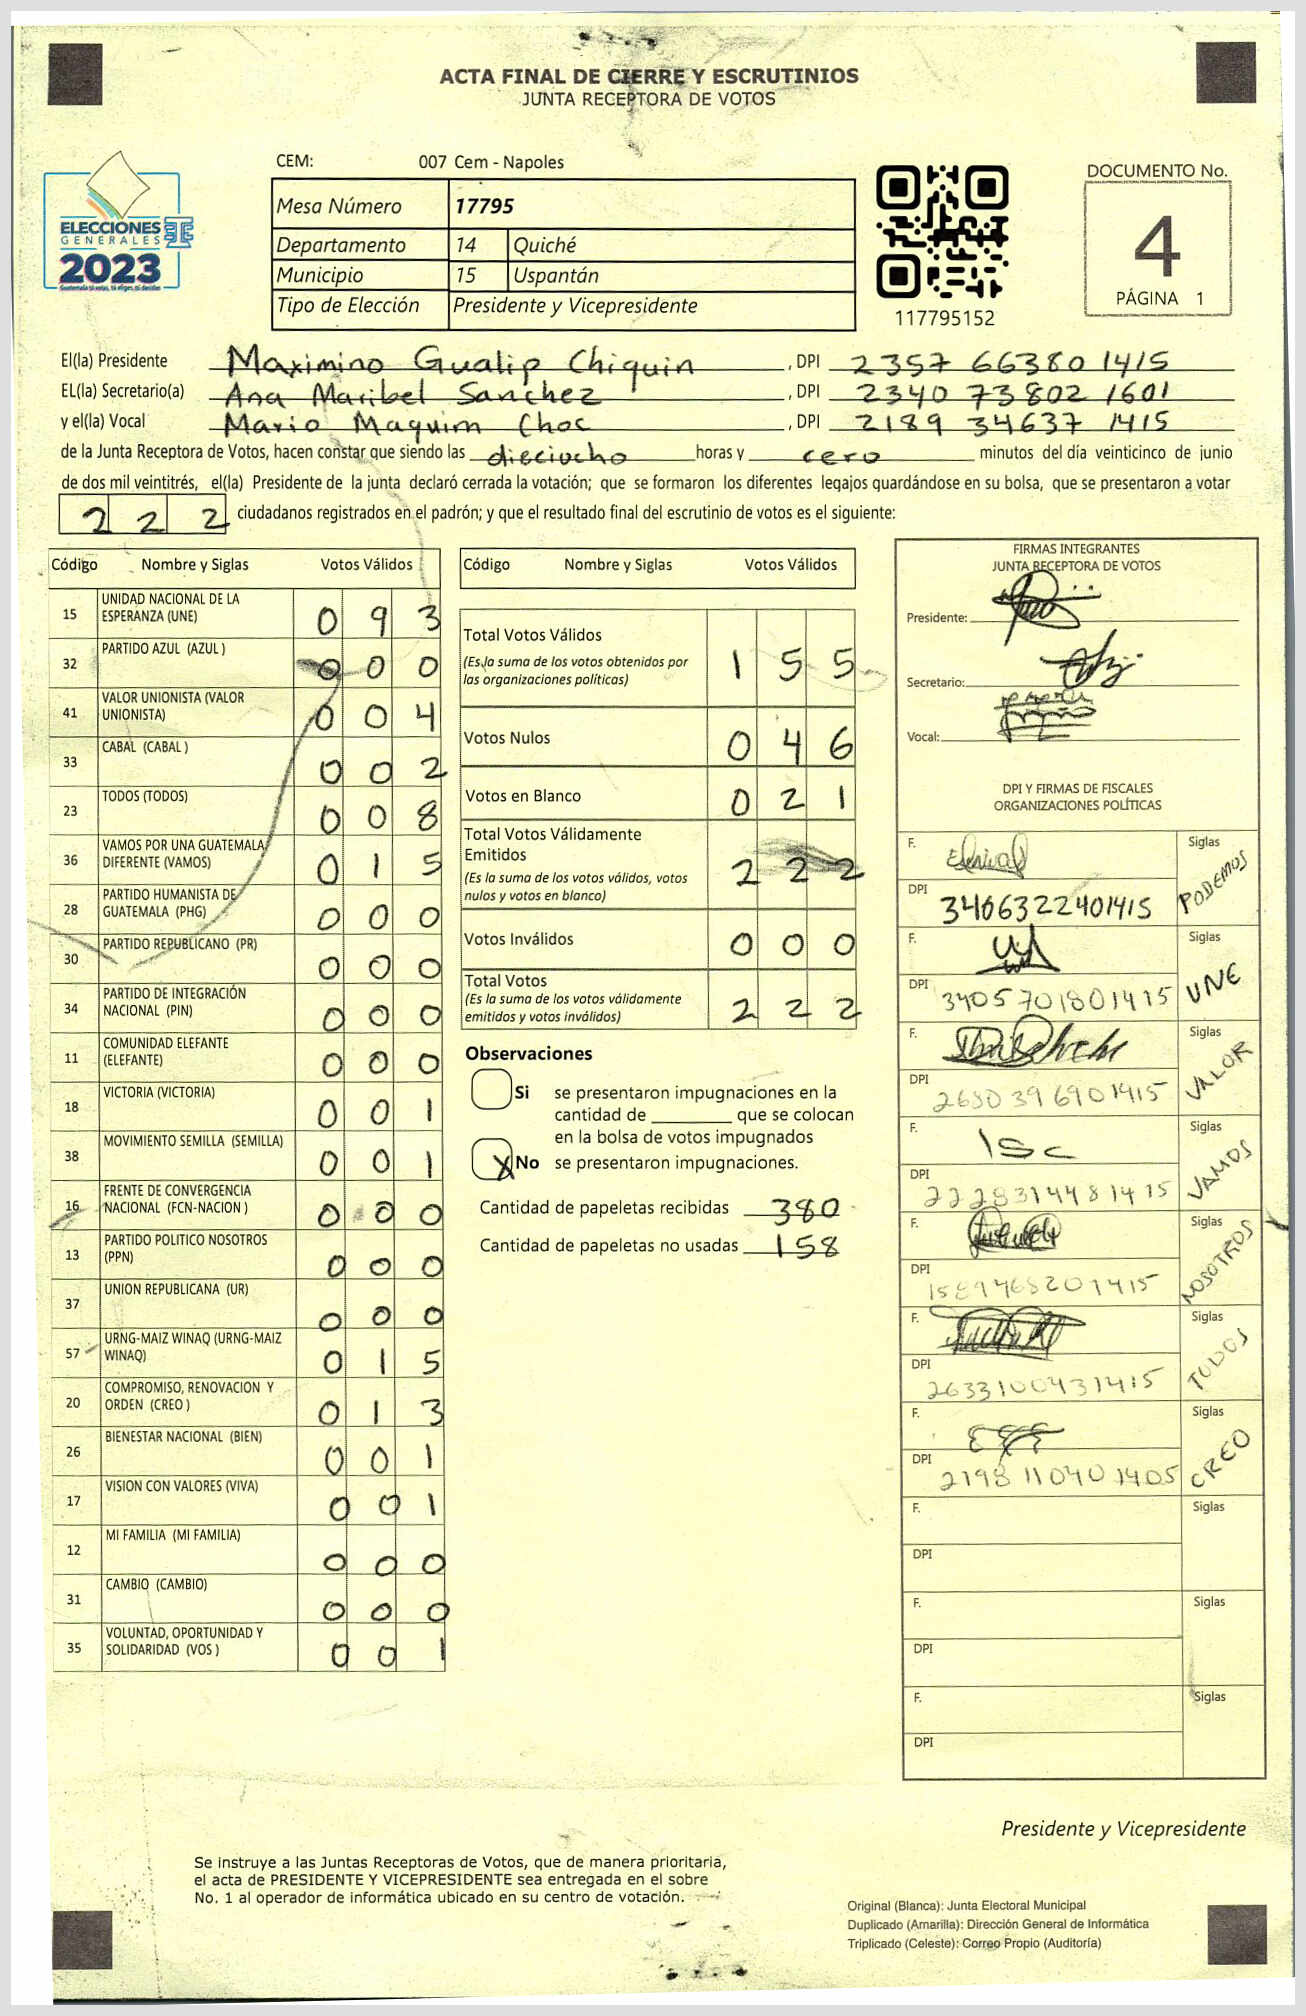 ACTA FINAL DE CIERRE Y ESCRUTINIOS
JUNTA RECEPTORA DE VOTOS
CEM: 007 Cem - Napoles
Mesa Número 17795
Departamento 14 Quiché
Municipio 15 Uspantán
Tipo de Elección Presidente y Vicepresidente
ELECCIONES
GENERALES
2023
Guatemala tú votas, tú eliges, tú decides
117795152
DOCUMENTO No.
4
PÁGINA 1
El(la) Presidente Maximino Gualip Chiquin , DPI 2357 66380 1415
EL(la) Secretario(a) Ana Maribel Sanchez , DPI 2340 73802 1601
y el(la) Vocal Mario Maquim Choc , DPI 2189 34637 1415
de la Junta Receptora de Votos, hacen constar que siendo las dieciocho horas y cero minutos del día veinticinco de junio
de dos mil veintitrés, el(la) Presidente de la junta declaró cerrada la votación; que se formaron los diferentes legajos guardándose en su bolsa, que se presentaron a votar
222 ciudadanos registrados en el padrón; y que el resultado final del escrutinio de votos es el siguiente:
Código Nombre y Siglas Votos Válidos
15 UNIDAD NACIONAL DE LA ESPERANZA (UNE) 093
32 PARTIDO AZUL (AZUL ) 000
41 VALOR UNIONISTA (VALOR UNIONISTA) 004
33 CABAL (CABAL ) 002
23 TODOS (TODOS) 008
36 VAMOS POR UNA GUATEMALA DIFERENTE (VAMOS) 015
28 PARTIDO HUMANISTA DE GUATEMALA (PHG) 000
30 PARTIDO REPUBLICANO (PR) 000
34 PARTIDO DE INTEGRACIÓN NACIONAL (PIN) 000
11 COMUNIDAD ELEFANTE (ELEFANTE) 000
18 VICTORIA (VICTORIA) 001
38 MOVIMIENTO SEMILLA (SEMILLA) 001
16 FRENTE DE CONVERGENCIA NACIONAL (FCN-NACION ) 000
13 PARTIDO POLITICO NOSOTROS (PPN) 000
37 UNION REPUBLICANA (UR) 000
57 URNG-MAIZ WINAQ (URNG-MAIZ WINAQ) 015
20 COMPROMISO, RENOVACION Y ORDEN (CREO ) 013
26 BIENESTAR NACIONAL (BIEN) 001
17 VISION CON VALORES (VIVA) 001
12 MI FAMILIA (MI FAMILIA) 000
31 CAMBIO (CAMBIO) 000
35 VOLUNTAD, OPORTUNIDAD Y SOLIDARIDAD (VOS ) 001
Código Nombre y Siglas Votos Válidos
Total Votos Válidos 155
(Es la suma de los votos obtenidos por
las organizaciones políticas)
Votos Nulos 046
Votos en Blanco 021
Total Votos Válidamente
Emitidos 222
(Es la suma de los votos válidos, votos
nulos y votos en blanco)
Votos Inválidos 000
Total Votos 222
(Es la suma de los votos válidamente
emitidos y votos inválidos)
Observaciones
Si se presentaron impugnaciones en la
cantidad de ________ que se colocan
en la bolsa de votos impugnados
X No se presentaron impugnaciones.
Cantidad de papeletas recibidas 380
Cantidad de papeletas no usadas 158
FIRMAS INTEGRANTES
JUNTA RECEPTORA DE VOTOS
Presidente:
Secretario:
Vocal:
DPI Y FIRMAS DE FISCALES
ORGANIZACIONES POLÍTICAS
F. Siglas PODEMOS
DPI 3406322401415
F. Siglas UNE
DPI 3405701801415
F. Siglas VALOR
DPI 2680396901415
F. Siglas VAMOS
DPI 2228314481415
F. Siglas NOSOTROS
DPI
F. Siglas TODOS
DPI 2633100431415
F. Siglas CREO
DPI 2198110401405
F. Siglas
DPI
F. Siglas
DPI
F. Siglas
DPI
Presidente y Vicepresidente
Se instruye a las Juntas Receptoras de Votos, que de manera prioritaria,
el acta de PRESIDENTE Y VICEPRESIDENTE sea entregada en el sobre
No. 1 al operador de informática ubicado en su centro de votación.
Original (Blanca): Junta Electoral Municipal
Duplicado (Amarilla): Dirección General de Informática
Triplicado (Celeste): Correo Propio (Auditoría)